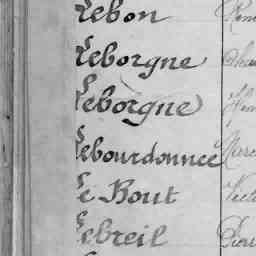 Lebon
Leborgne
Leborgne
Lebourdonnec
Le Bout
Lebreil